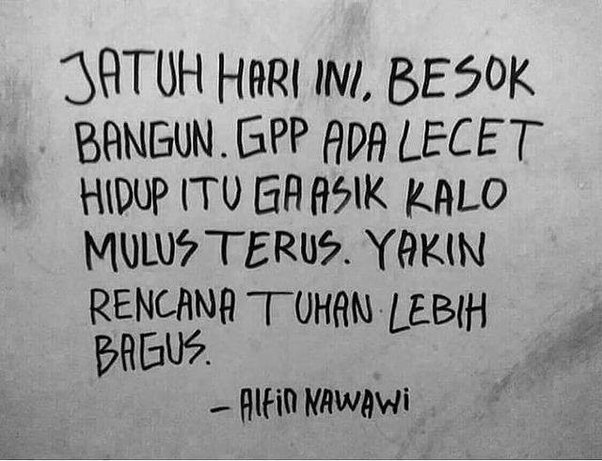 JATUH HARI INI. BESOK
BANGUN. GPP ADA LECET
HIDUP ITU GA ASIK KALO
MULUS TERUS. YAKIN
RENCANA TUHAN LEBIH
BAGUS.
– Alfin NAWAWi